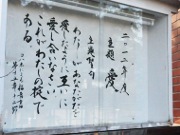 二〇一二年度
主題 愛
主題聖句
わたしがあなたがたを
愛したように互いに
愛し合いなさい。
これがわたしの掟で
ある。